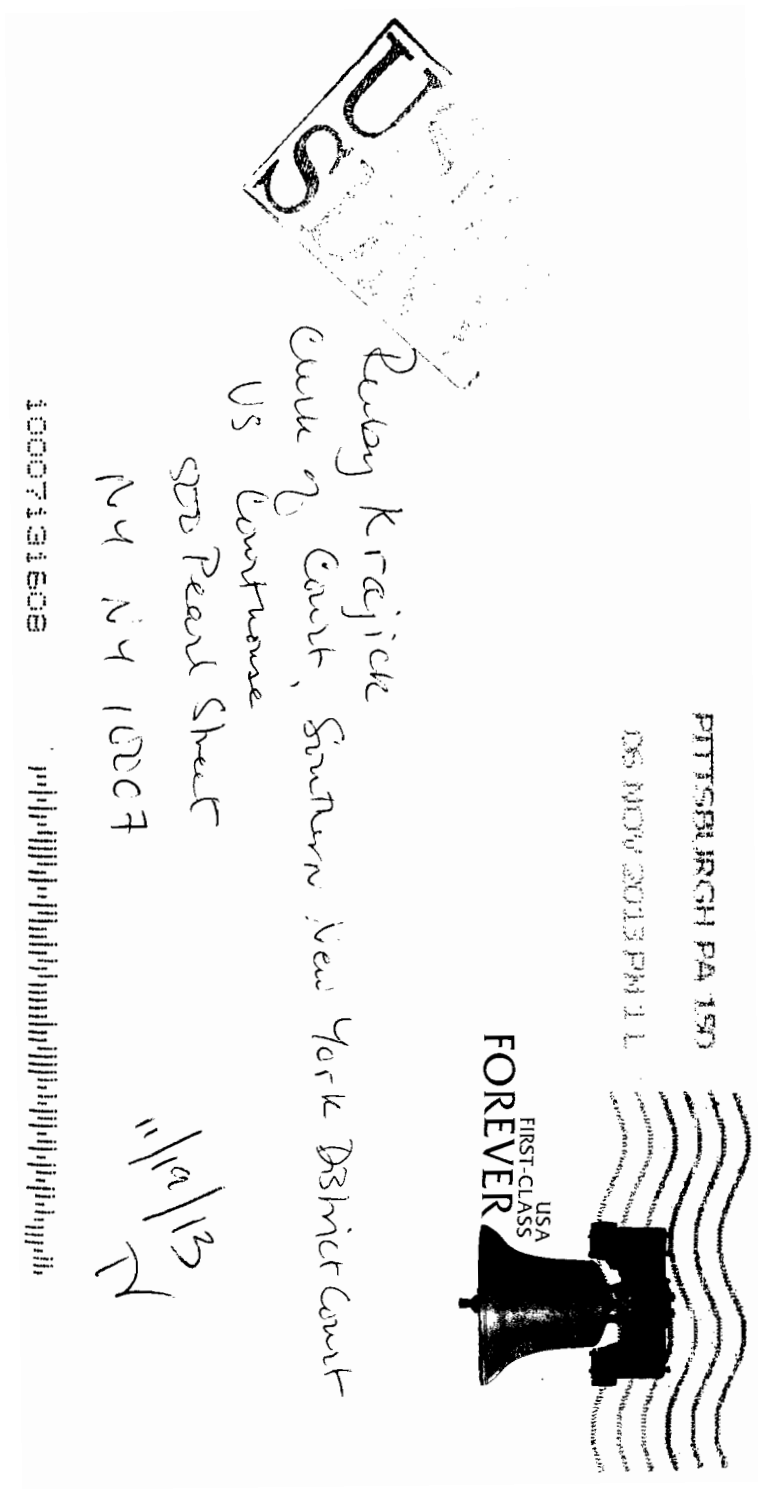 PITTSBURGH PA 150
05 NOV 2013 PM 1 L
USA
FIRST-CLASS
FOREVER
US
Ruby Krajick
Clerk of Court, Southern New York District Court
US Courthouse
500 Pearl Street
NY NY 10007
11/19/13
10007131608